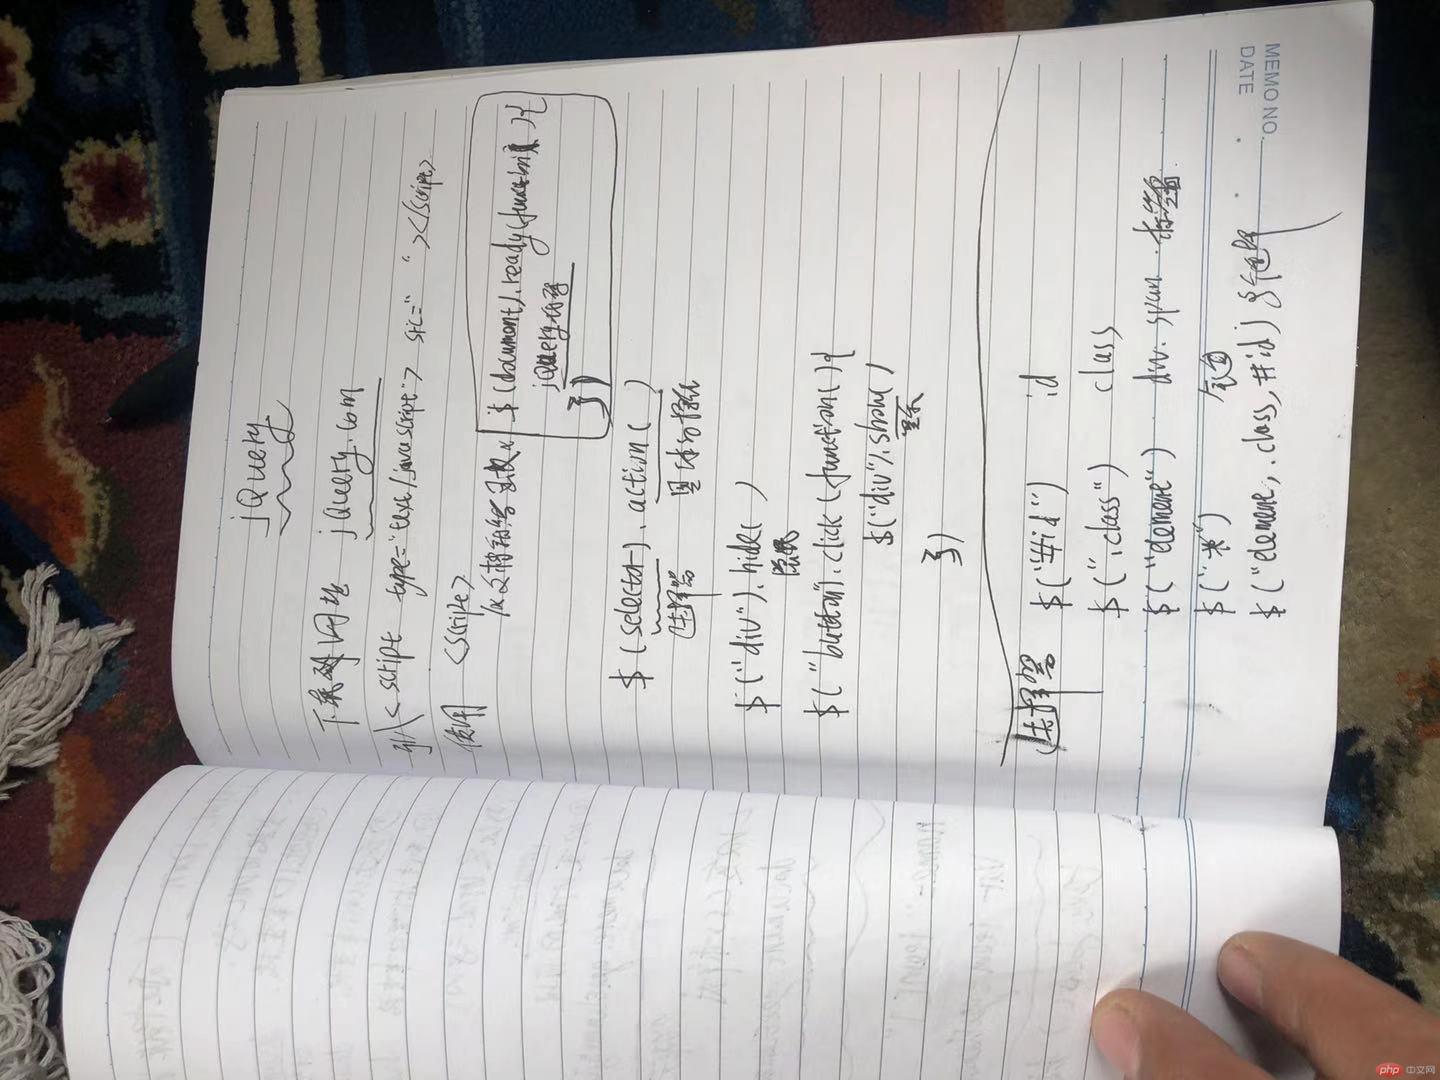 MEMO NO.
DATE
jQuery
下载网址 jQuery.com
引入 <script type="text/javascript" src=" "></script>
使用 <script>
$(document).ready(function(){
jQuery内容
})
$(selector).action()
选择器
$("div").hide()
隐藏
$("button").click(function(){
$("div").show()
显示
})
选择器 $("#id") id
$(".class") class
$("element") div.span.标签
$("*") 全选
$("element,.class,#id")
php 中文网